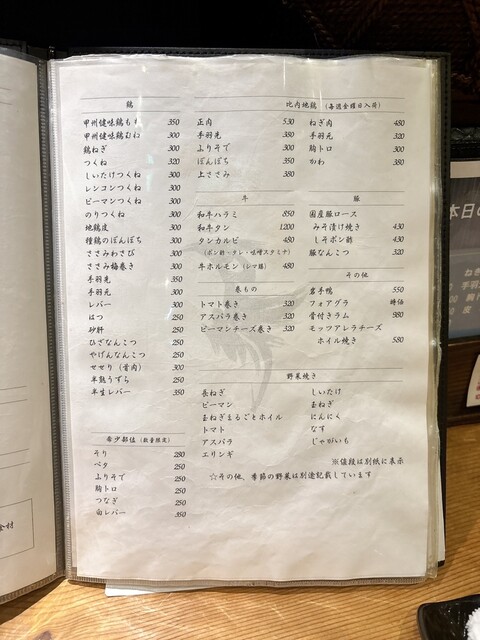 鶏
甲州健味鶏もも 350
甲州健味鶏むね 300
鶏ねぎ 300
つくね 320
しいたけつくね 300
レンコンつくね 300
ピーマンつくね 300
のりつくね 300
地鶏皮 300
種鶏のぼんぼち 300
ささみわさび 300
ささみ梅巻き 300
手羽先 350
手羽元 300
レバー 300
はつ 250
砂肝 250
ひざなんこつ 250
やげんなんこつ 250
せせり（首肉） 300
半熟うずら 250
半生レバー 350
希少部位（数量限定）
そり 280
ペタ 250
ふりそで 250
胸トロ 250
つなぎ 250
白レバー 350
比内地鶏（毎週金曜日入荷）
正肉 530
手羽先 350
ふりそで 300
ぼんぼち 350
上ささみ 380
ねぎ肉 480
手羽元 320
胸トロ 300
かわ 380
牛
和牛ハラミ 850
和牛タン 1200
タンカルビ 480
（ポン酢・タレ・味噌スタミナ）
牛ホルモン（レマ豚） 480
豚
国産豚ロース
みそ漬け焼き 430
しそポン酢 430
豚なんこつ 320
巻もの
トマト巻き 320
アスパラ巻き 320
ピーマンチーズ巻き 320
その他
岩手鴨 550
フォアグラ 時価
骨付きラム 980
モッツァレラチーズ
ホイル焼き 580
野菜焼き
長ねぎ
ピーマン
玉ねぎまるごとホイル
トマト
アスパラ
エリンギ
しいたけ
玉ねぎ
にんにく
なす
じゃがいも
※値段は別紙に表示
☆その他、季節の野菜は別途記載しています
本日の
ねぎ
手羽
胸
皮
食材